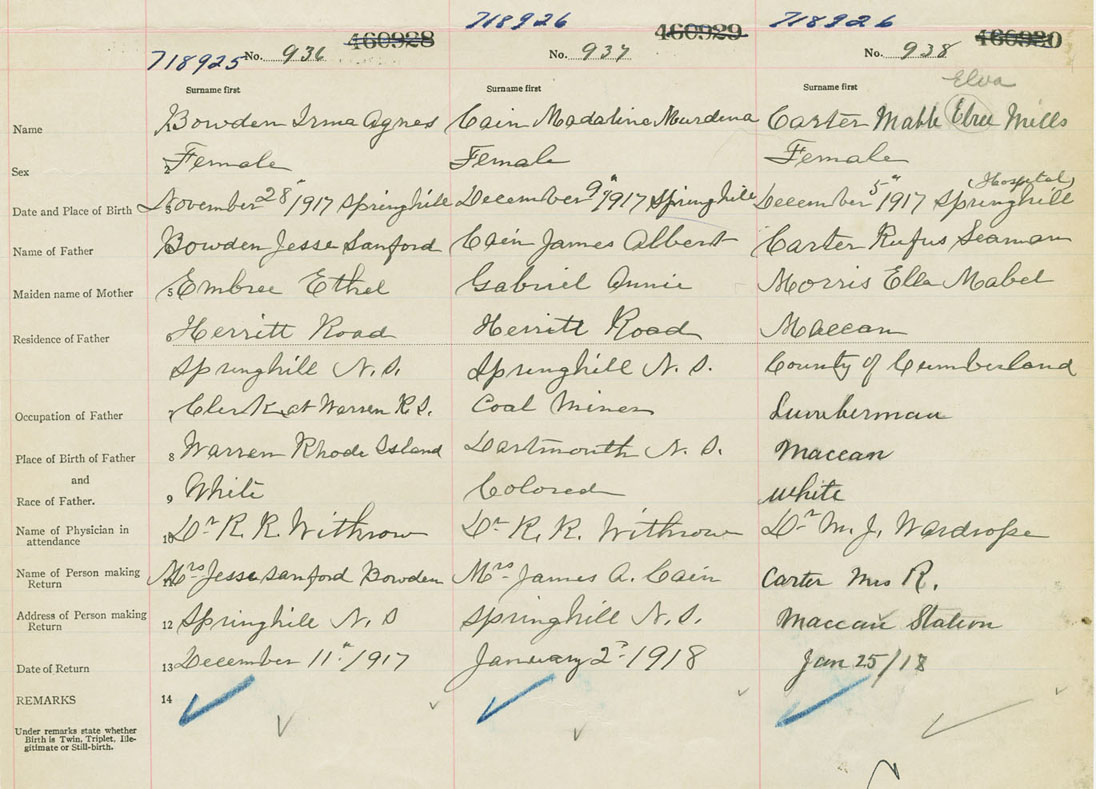 718925 No. 936 460928
718926 No. 937 460929
718926 No. 938 460930
Surname first Surname first Surname first
Elva
Name 1 Bowden Irma Agnes Cain Madaline Murdena Carter Mable Elva Mills
Sex 2 Female Female Female
(Hospital)
Date and Place of Birth 3 November 28"/1917 Springhill December 9"/1917 Springhill December 5"/1917 Springhill
Name of Father 4 Bowden Jesse Sanford Cain James Albert Carter Rufus Seaman
Maiden name of Mother 5 Embree Ethel Gabriel Annie Morris Ella Mabel
Residence of Father 6 Herritt Road Herritt Road Maccan
Springhill N.S. Springhill N.S. County of Cumberland
Occupation of Father 7 Clerk at Warren R.I. Coal Miner Lumberman
Place of Birth of Father 8 Warren Rhode Island Dartmouth N.S. Maccan
and
Race of Father. 9 White Colored white
Name of Physician in attendance 10 Dr R. R. Withrow Dr R. R. Withrow Dr M. J. Wardrope
Name of Person making Return 11 Mrs Jesse Sanford Bowden Mrs James A. Cain Carter Mrs R.
Address of Person making Return 12 Springhill N.S Springhill N.S. Maccan Station
Date of Return 13 December 11"/1917 January 2d 1918 Jan 25/18
REMARKS 14
Under remarks state whether
Birth is Twin, Triplet, Ille-
gitimate or Still-birth.